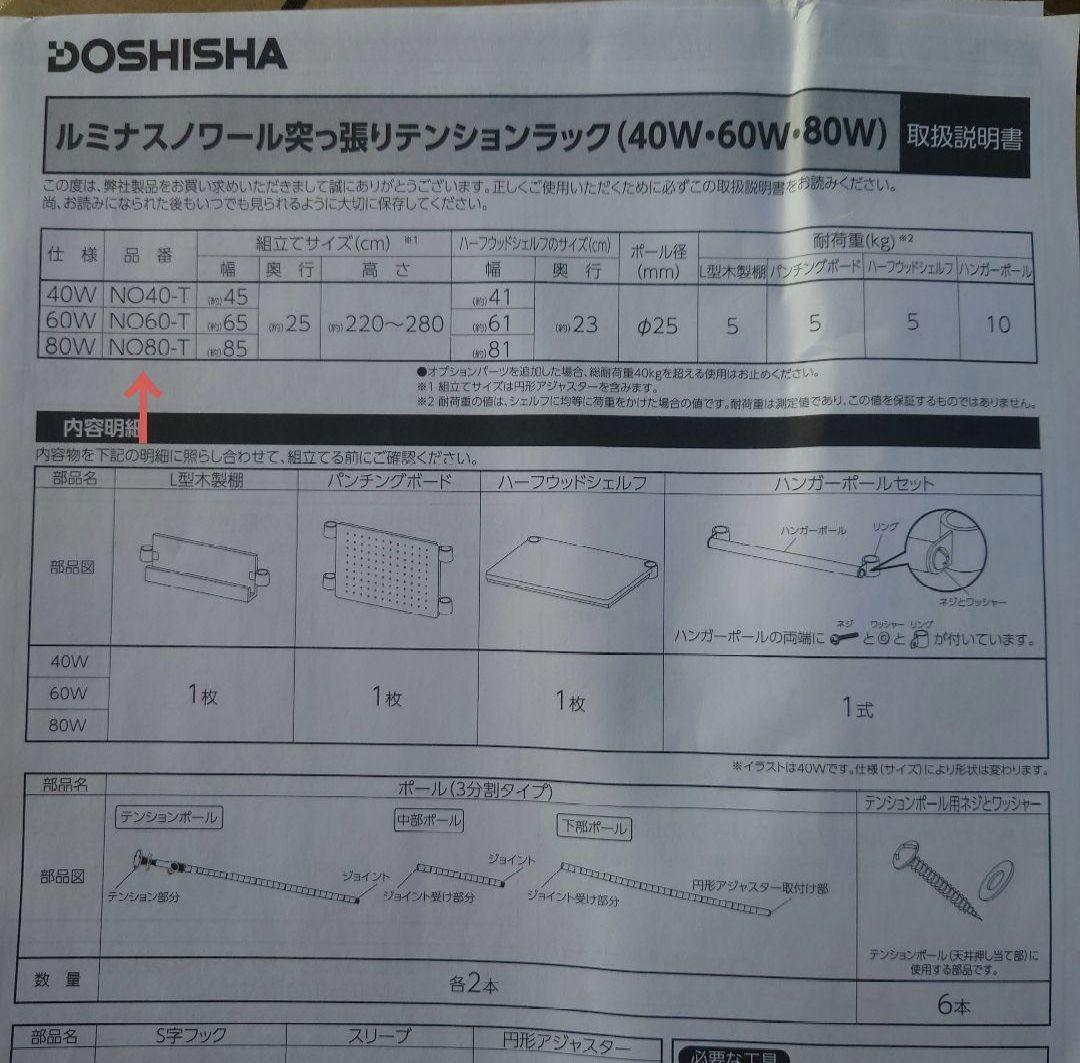 DOSHISHA
ルミナスノワール突っ張りテンションラック(40W・60W・80W) 取扱説明書
この度は、弊社製品をお買い求めいただきまして誠にありがとうございます。正しくご使用いただくために必ずこの取扱説明書をお読みください。
尚、お読みになられた後もいつでも見られるように大切に保存してください。
仕様 品番 組立てサイズ(cm) ※1 ハーフウッドシェルフのサイズ(cm) ポール径(mm) 耐荷重(kg) ※2
幅 奥行 高さ 幅 奥行 L型木製棚 パンチングボード ハーフウッドシェルフ ハンガーポール
40W NO40-T (約)45 (約)41
60W NO60-T (約)65 (約)25 (約)220〜280 (約)61 (約)23 Φ25 5 5 5 10
80W NO80-T (約)85 (約)81
●オプションパーツを追加した場合、総耐荷重40kgを超える使用はお止めください。
※1 組立てサイズは円形アジャスターを含みます。
※2 耐荷重の値は、シェルフに均等に荷重をかけた場合の値です。耐荷重は測定値であり、この値を保証するものではありません。
内容明細
内容物を下記の明細に照らし合わせて、組立てる前にご確認ください。
部品名 L型木製棚 パンチングボード ハーフウッドシェルフ ハンガーポールセット
部品図
ハンガーポール リング
ネジとワッシャー
ネジ ワッシャー リング
ハンガーポールの両端に と と が付いています。
40W
60W 1枚 1枚 1枚 1式
80W
※イラストは40Wです。仕様(サイズ)により形状は変わります。
部品名 ポール(3分割タイプ) テンションポール用ネジとワッシャー
テンションポール 中部ポール 下部ポール
部品図
テンション部分 ジョイント ジョイント受け部分 ジョイント ジョイント受け部分 円形アジャスター取付け部
テンションポール(天井押し当て部)に
使用する部品です。
数量 各2本 6本
部品名 S字フック スリーブ 円形アジャスター 必要な工具